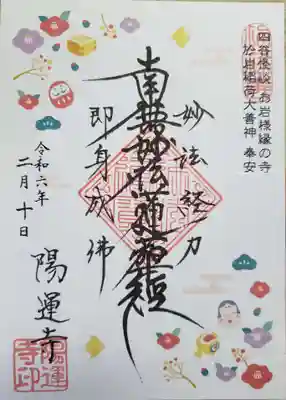 四谷怪談 お岩様縁の寺
於岩稲荷大善神 奉安
妙法経力
南無妙法蓮華経
即身成佛
令和六年
二月十日
陽運寺
陽運
寺印